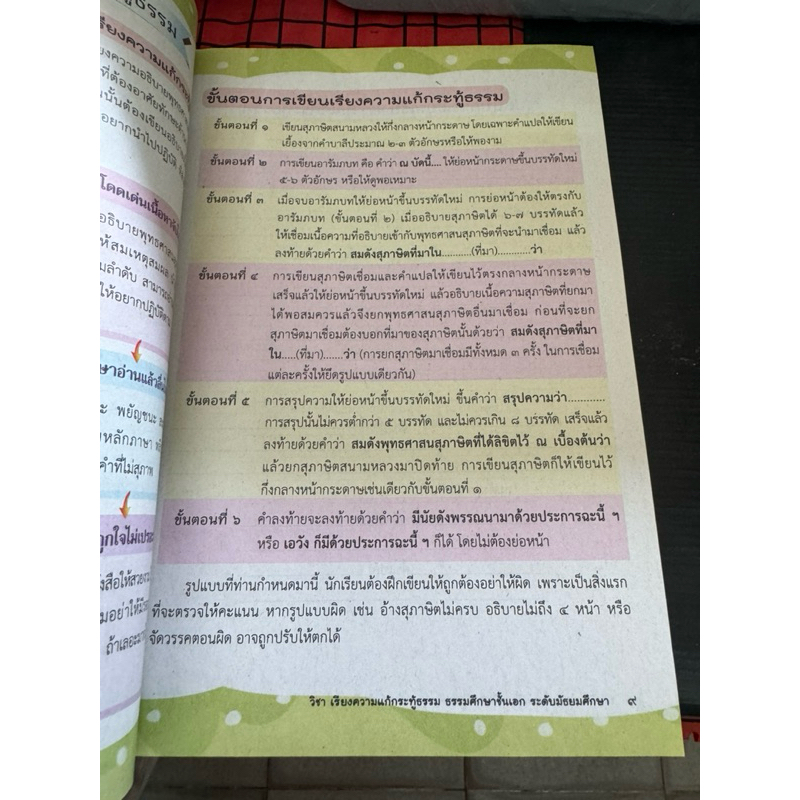 ขั้นตอนการเขียนเรียงความแก้กระทู้ธรรม
ขั้นตอนที่ ๑ เขียนสุภาษิตสนามหลวงให้กึ่งกลางหน้ากระดาษ โดยเฉพาะคำแปลให้เขียน
เยื้องจากคำบาลีประมาณ ๒-๓ ตัวอักษรหรือให้พองาม
ขั้นตอนที่ ๒ การเขียนอารัมภบท คือ คำว่า ณ บัดนี้.... ให้ย่อหน้ากระดาษขึ้นบรรทัดใหม่
๕-๖ ตัวอักษร หรือให้ดูพอเหมาะ
ขั้นตอนที่ ๓ เมื่อจบอารัมภบทให้ย่อหน้าขึ้นบรรทัดใหม่ การย่อหน้าต้องให้ตรงกับ
อารัมภบท (ขั้นตอนที่ ๒) เมื่ออธิบายสุภาษิตได้ ๖-๗ บรรทัดแล้ว
ให้เชื่อมเนื้อความที่อธิบายเข้ากับพุทธศาสนสุภาษิตที่จะนำมาเชื่อม แล้ว
ลงท้ายด้วยคำว่า สมดังสุภาษิตที่มาใน..........(ที่มา)...........ว่า
ขั้นตอนที่ ๔ การเขียนสุภาษิตเชื่อมและคำแปลให้เขียนไว้ตรงกลางหน้ากระดาษ
เสร็จแล้วให้ย่อหน้าขึ้นบรรทัดใหม่ แล้วอธิบายเนื้อความสุภาษิตที่ยกมา
ได้พอสมควรแล้วจึงยกพุทธศาสนสุภาษิตอื่นมาเชื่อม ก่อนที่จะยก
สุภาษิตมาเชื่อมต้องบอกที่มาของสุภาษิตนั้นด้วยว่า สมดังสุภาษิตที่มา
ใน.....(ที่มา).......ว่า (การยกสุภาษิตมาเชื่อมมีทั้งหมด ๓ ครั้ง ในการเชื่อม
แต่ละครั้งให้ยึดรูปแบบเดียวกัน)
ขั้นตอนที่ ๕ การสรุปความให้ย่อหน้าขึ้นบรรทัดใหม่ ขึ้นคำว่า สรุปความว่า............
การสรุปนั้นไม่ควรต่ำกว่า ๕ บรรทัด และไม่ควรเกิน ๘ บรรทัด เสร็จแล้ว
ลงท้ายด้วยคำว่า สมดังพุทธศาสนสุภาษิตที่ได้ลิขิตไว้ ณ เบื้องต้นว่า
แล้วยกสุภาษิตสนามหลวงมาปิดท้าย การเขียนสุภาษิตก็ให้เขียนไว้
กึ่งกลางหน้ากระดาษเช่นเดียวกับขั้นตอนที่ ๑
ขั้นตอนที่ ๖ คำลงท้ายจะลงท้ายด้วยคำว่า มีนัยดังพรรณนามาด้วยประการฉะนี้ ฯ
หรือ เอวัง ก็มีด้วยประการฉะนี้ ฯ ก็ได้ โดยไม่ต้องย่อหน้า
รูปแบบที่ท่านกำหนดมานี้ นักเรียนต้องฝึกเขียนให้ถูกต้องอย่าให้ผิด เพราะเป็นสิ่งแรก
ที่จะตรวจให้คะแนน หากรูปแบบผิด เช่น อ้างสุภาษิตไม่ครบ อธิบายไม่ถึง ๔ หน้า หรือ
จัดวรรคตอนผิด อาจถูกปรับให้ตกได้
วิชา เรียงความแก้กระทู้ธรรม ธรรมศึกษาชั้นเอก ระดับมัธยมศึกษา ๙